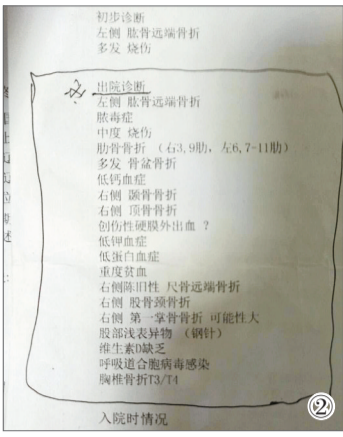 初步诊断
左侧 肱骨远端骨折
多发 烧伤
出院诊断
左侧 肱骨远端骨折
脓毒症
中度 烧伤
肋骨骨折 （右3,9肋，左6,7-11肋）
多发 骨盆骨折
低钙血症
右侧 颞骨骨折
右侧 顶骨骨折
创伤性硬膜外出血 ？
低钾血症
低蛋白血症
重度贫血
右侧陈旧性 尺骨远端骨折
右侧 股骨颈骨折
右侧 第一掌骨骨折 可能性大
股部浅表异物 （钢针）
维生素D缺乏
呼吸道合胞病毒感染
胸椎骨折T3/T4
入院时情况
②